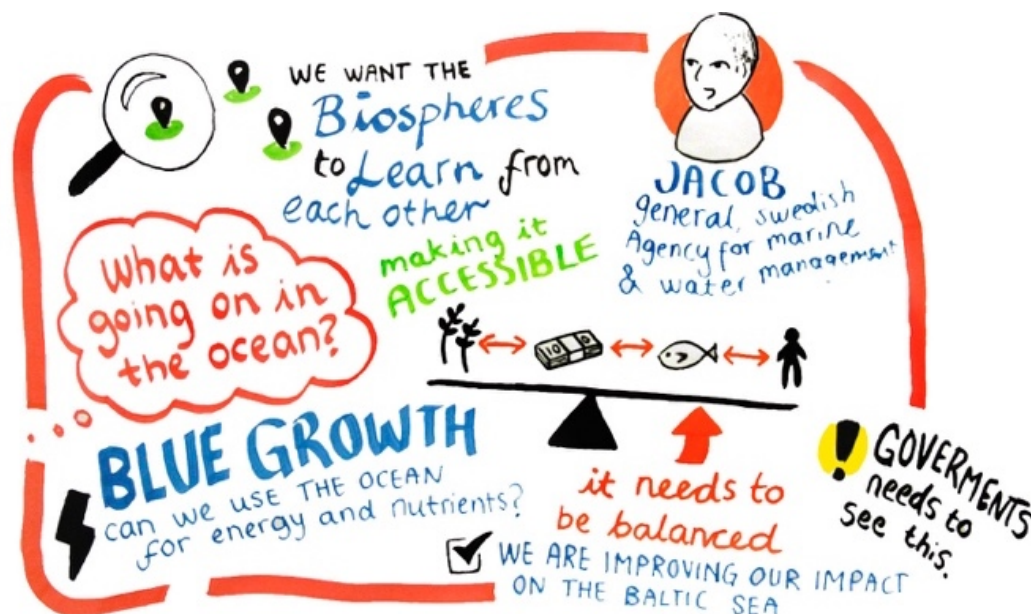 WE WANT THE
Biospheres
to Learn from
each other
making it
ACCESSIBLE
JACOB
general, swedish
Agency for marine
& water management
What is
going on in
the ocean?
10
BLUE GROWTH
can we use THE OCEAN
for energy and nutrients?
it needs to
be balanced
! GOVERMENTS
needs to
see this.
WE ARE IMPROVING OUR IMPACT
ON THE BALTIC SEA